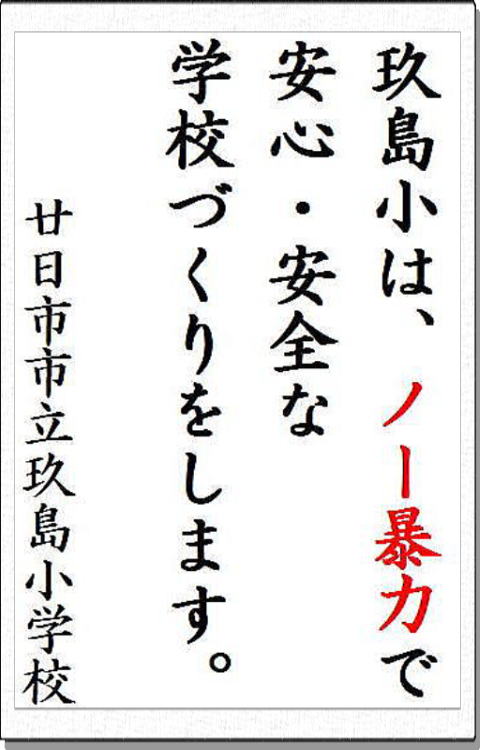 玖島小は、ノー暴力で
安心・安全な
学校づくりをします。
廿日市市立玖島小学校